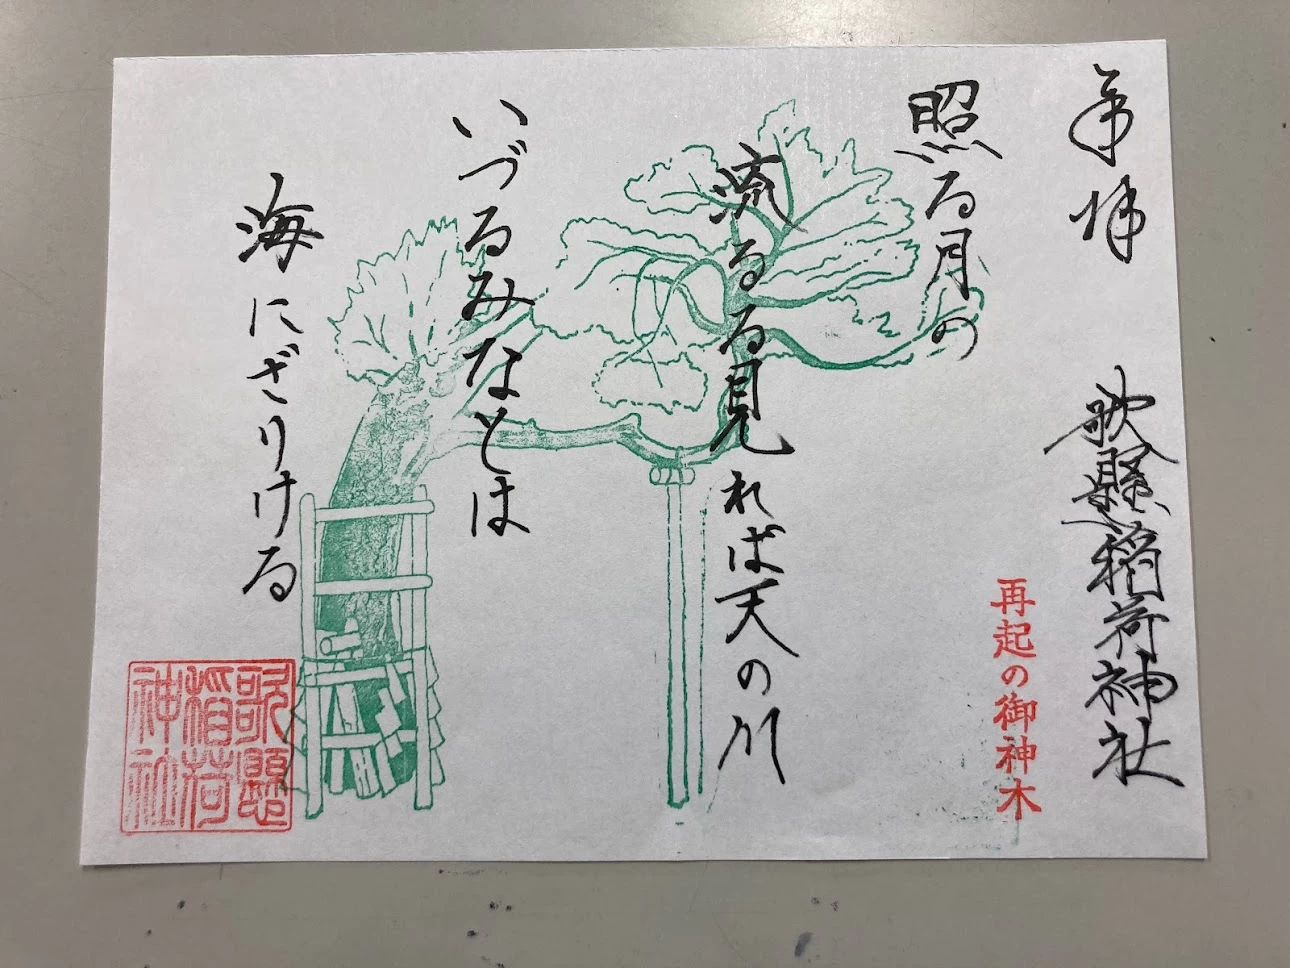 奉拝
歌懸稲荷神社
再起の御神木
照る月の
流るる見れば天の川
いづるみなとは
海にざりける
歌懸
稲荷
神社